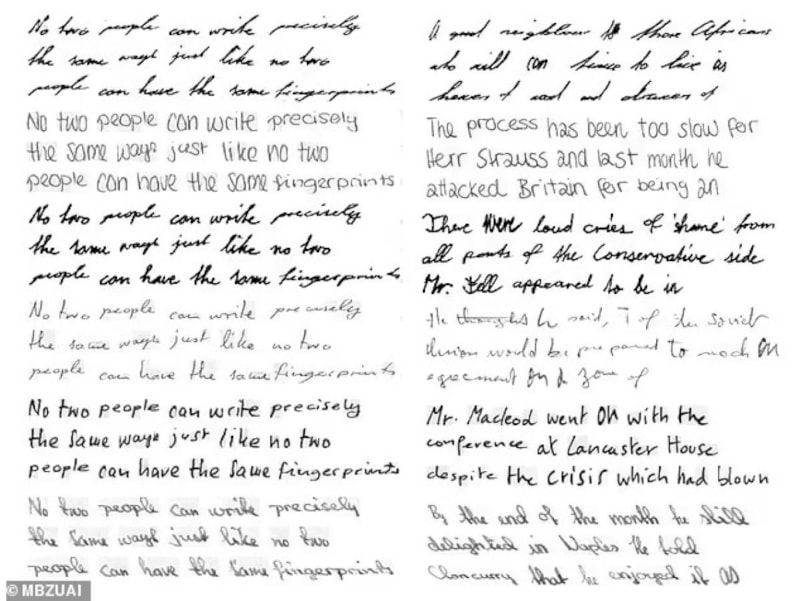 No two people can write precisely
the same ways just like no two
people can have the same fingerprints
No two people can write precisely
the same ways just like no two
people can have the same fingerprints
No two people can write precisely
the same ways just like no two
people can have the same fingerprints
No two people can write precisely
the same ways just like no two
people can have the same fingerprints
No two people can write precisely
the same ways just like no two
people can have the same fingerprints
No two people can write precisely
the same ways just like no two
people can have the same fingerprints
A good neighbour those Africans
who will to live as
of and of
The process has been too slow for
Herr Strauss and last month he
attacked Britain for being an
There were loud cries of 'shame' from
all parts of the Conservative side
Mr. appeared to be in
He he said, of the Soviet
would be prepared to an
agreement on a zone of
Mr. Macleod went on with the
conference at Lancaster House
despite the crisis which had blown
By the end of the month he still
delighted in Naples He told
Cloncurry that he enjoyed it as
© MBZUAI